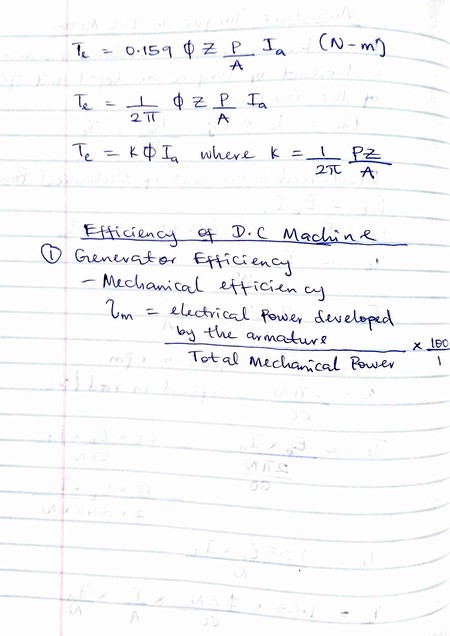 Te = 0.159 ϕ Z P/A Ia (N-m)
Te = 1/2π ϕ Z P/A Ia
Te = KϕIa where K = 1/2π PZ/A
Efficiency of D.C Machine
① Generator Efficiency
- Mechanical efficiency
ηm = electrical Power developed
by the armature
Total Mechanical Power × 100/1